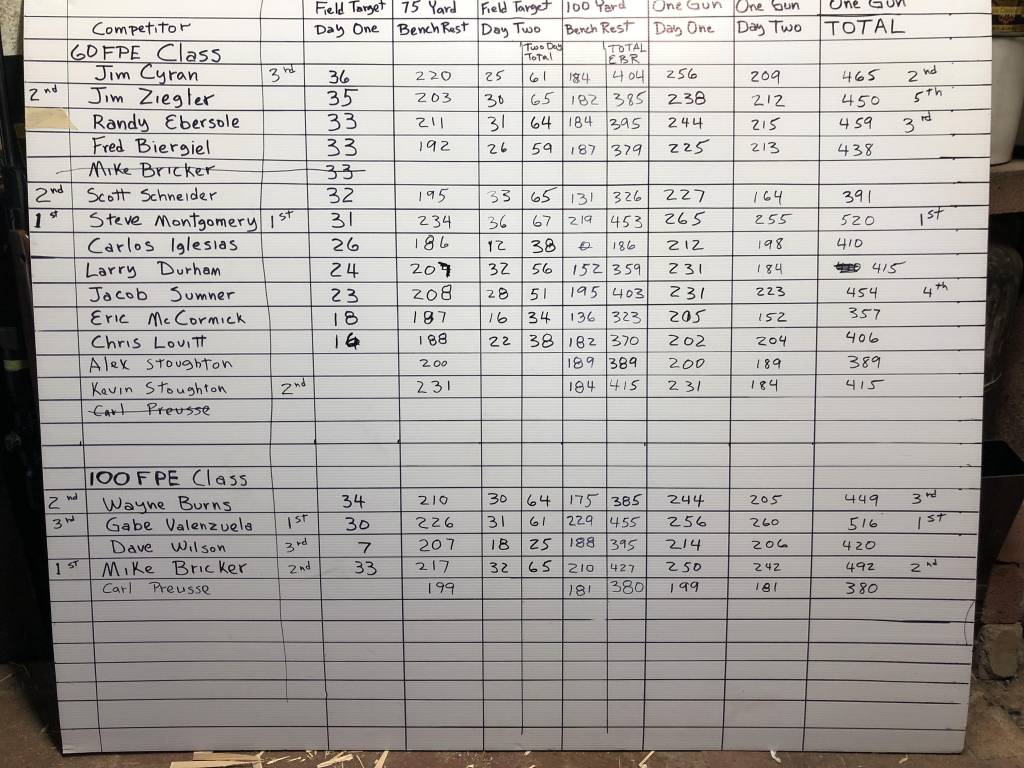 Field Target 75 Yard Field Target 100 Yard One Gun One Gun One Gun
Competitor Day One Bench Rest Day Two Bench Rest Day One Day Two TOTAL
60 FPE Class Two Day Total TOTAL EBR
Jim Cyran 3rd 36 220 25 61 184 404 256 209 465 2nd
2nd Jim Ziegler 35 203 30 65 182 385 238 212 450 5th
Randy Ebersole 33 211 31 64 184 395 244 215 459 3rd
Fred Biergiel 33 192 26 59 187 379 225 213 438
Mike Bricker 33
2nd Scott Schneider 32 195 33 65 131 326 227 164 391
1st Steve Montgomery 1st 31 234 36 67 219 453 265 255 520 1st
Carlos Iglesias 26 186 12 38 0 186 212 198 410
Larry Durham 24 207 32 56 152 359 231 184 415
Jacob Sumner 23 208 28 51 195 403 231 223 454 4th
Eric McCormick 18 187 16 34 136 323 205 152 357
Chris Lovitt 16 188 22 38 182 370 202 204 406
Alex Stoughton 200 189 389 200 189 389
Kevin Stoughton 2nd 231 184 415 231 184 415
Carl Preusse
100 FPE Class
2nd Wayne Burns 34 210 30 64 175 385 244 205 449 3rd
3rd Gabe Valenzuela 1st 30 226 31 61 229 455 256 260 516 1st
Dave Wilson 3rd 7 207 18 25 188 395 214 206 420
1st Mike Bricker 2nd 33 217 32 65 210 427 250 242 492 2nd
Carl Preusse 199 181 380 199 181 380